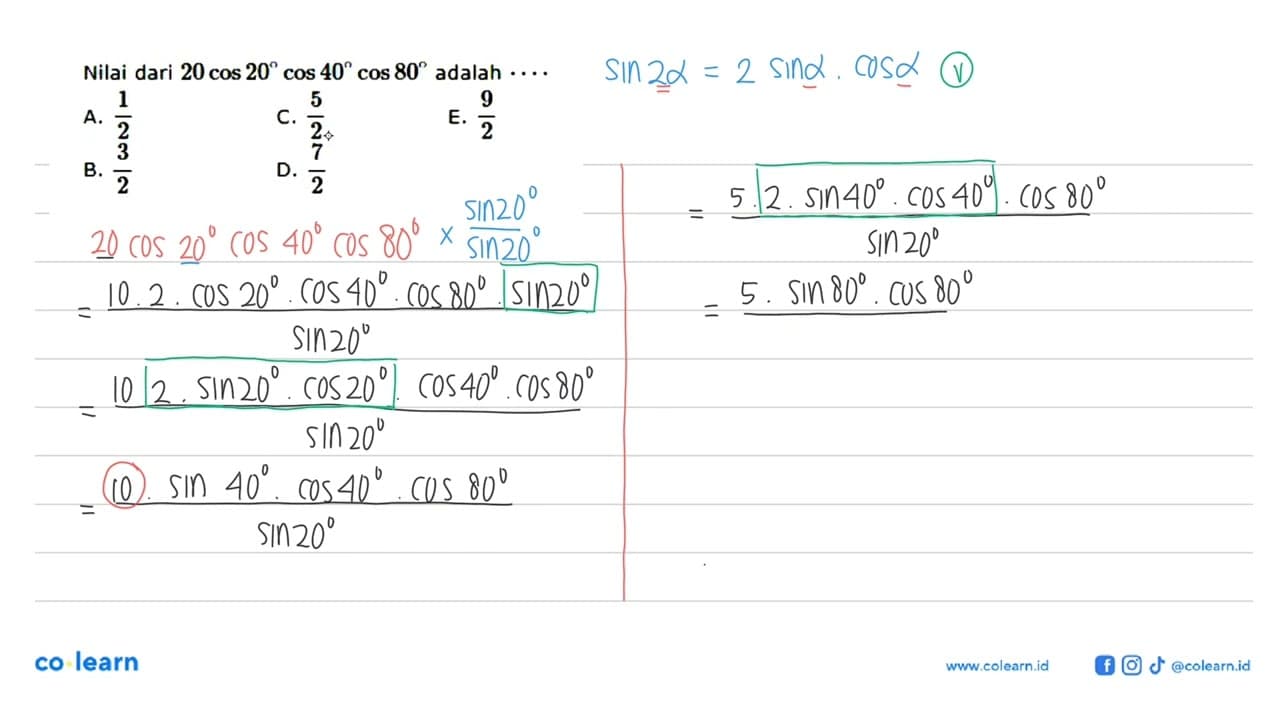 Nilai dari 20 cos 20° cos 40° cos 80° adalah ····
A. 1/2 C. 5/2 E. 9/2
B. 3/2 D. 7/2
sin 2α = 2 sin α . cos α (v)
20 cos 20° cos 40° cos 80° × sin 20°/sin 20°
= 10 . 2 . cos 20° . cos 40° . cos 80° . sin 20° / sin 20°
= 10 2 . sin 20° . cos 20° . cos 40° . cos 80° / sin 20°
= 10 . sin 40° . cos 40° . cos 80° / sin 20°
= 5 . 2 . sin 40° . cos 40° . cos 80° / sin 20°
= 5 . sin 80° . cos 80°
co learn
www.colearn.id @colearn.id